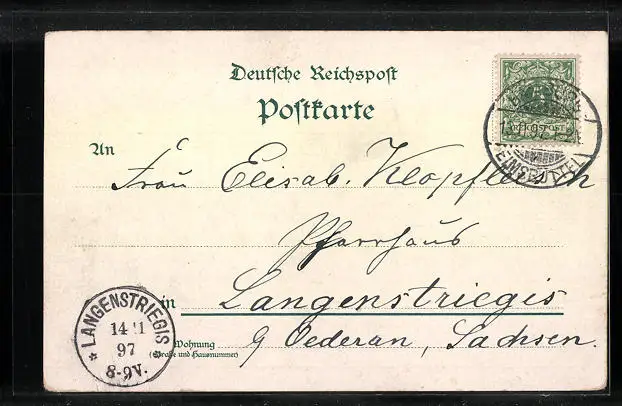 Deutsche Reichspost
Postkarte
An
Frau Elisab. Klopfleisch
Pfarrhaus
in Langenstriegis
Wohnung
(Straße und Hausnummer)
g Oederan, Sachsen.
REICHSPOST
EIMSBÜTTEL
LANGENSTRIEGIS
14 11
97
8-9V.